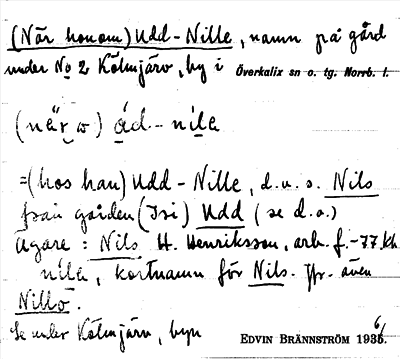 (När honom) Udd-Nille, namn på gård
under No 2 Kölmjärv, by i Överkalix sn o. tg. Norrb. l.
(när o) ád-nila
=(hos han) Udd-Nille, d.v.s. Nils
från gården (Isi) Udd (se d.o.)
Ägare: Nils H. Henriksson, arb. f. -77. Kh
nila, kortnamn för Nils. Jfr. även
Nillo.
Se under Kölmjärv, byn
EDVIN BRÄNNSTRÖM 1936.